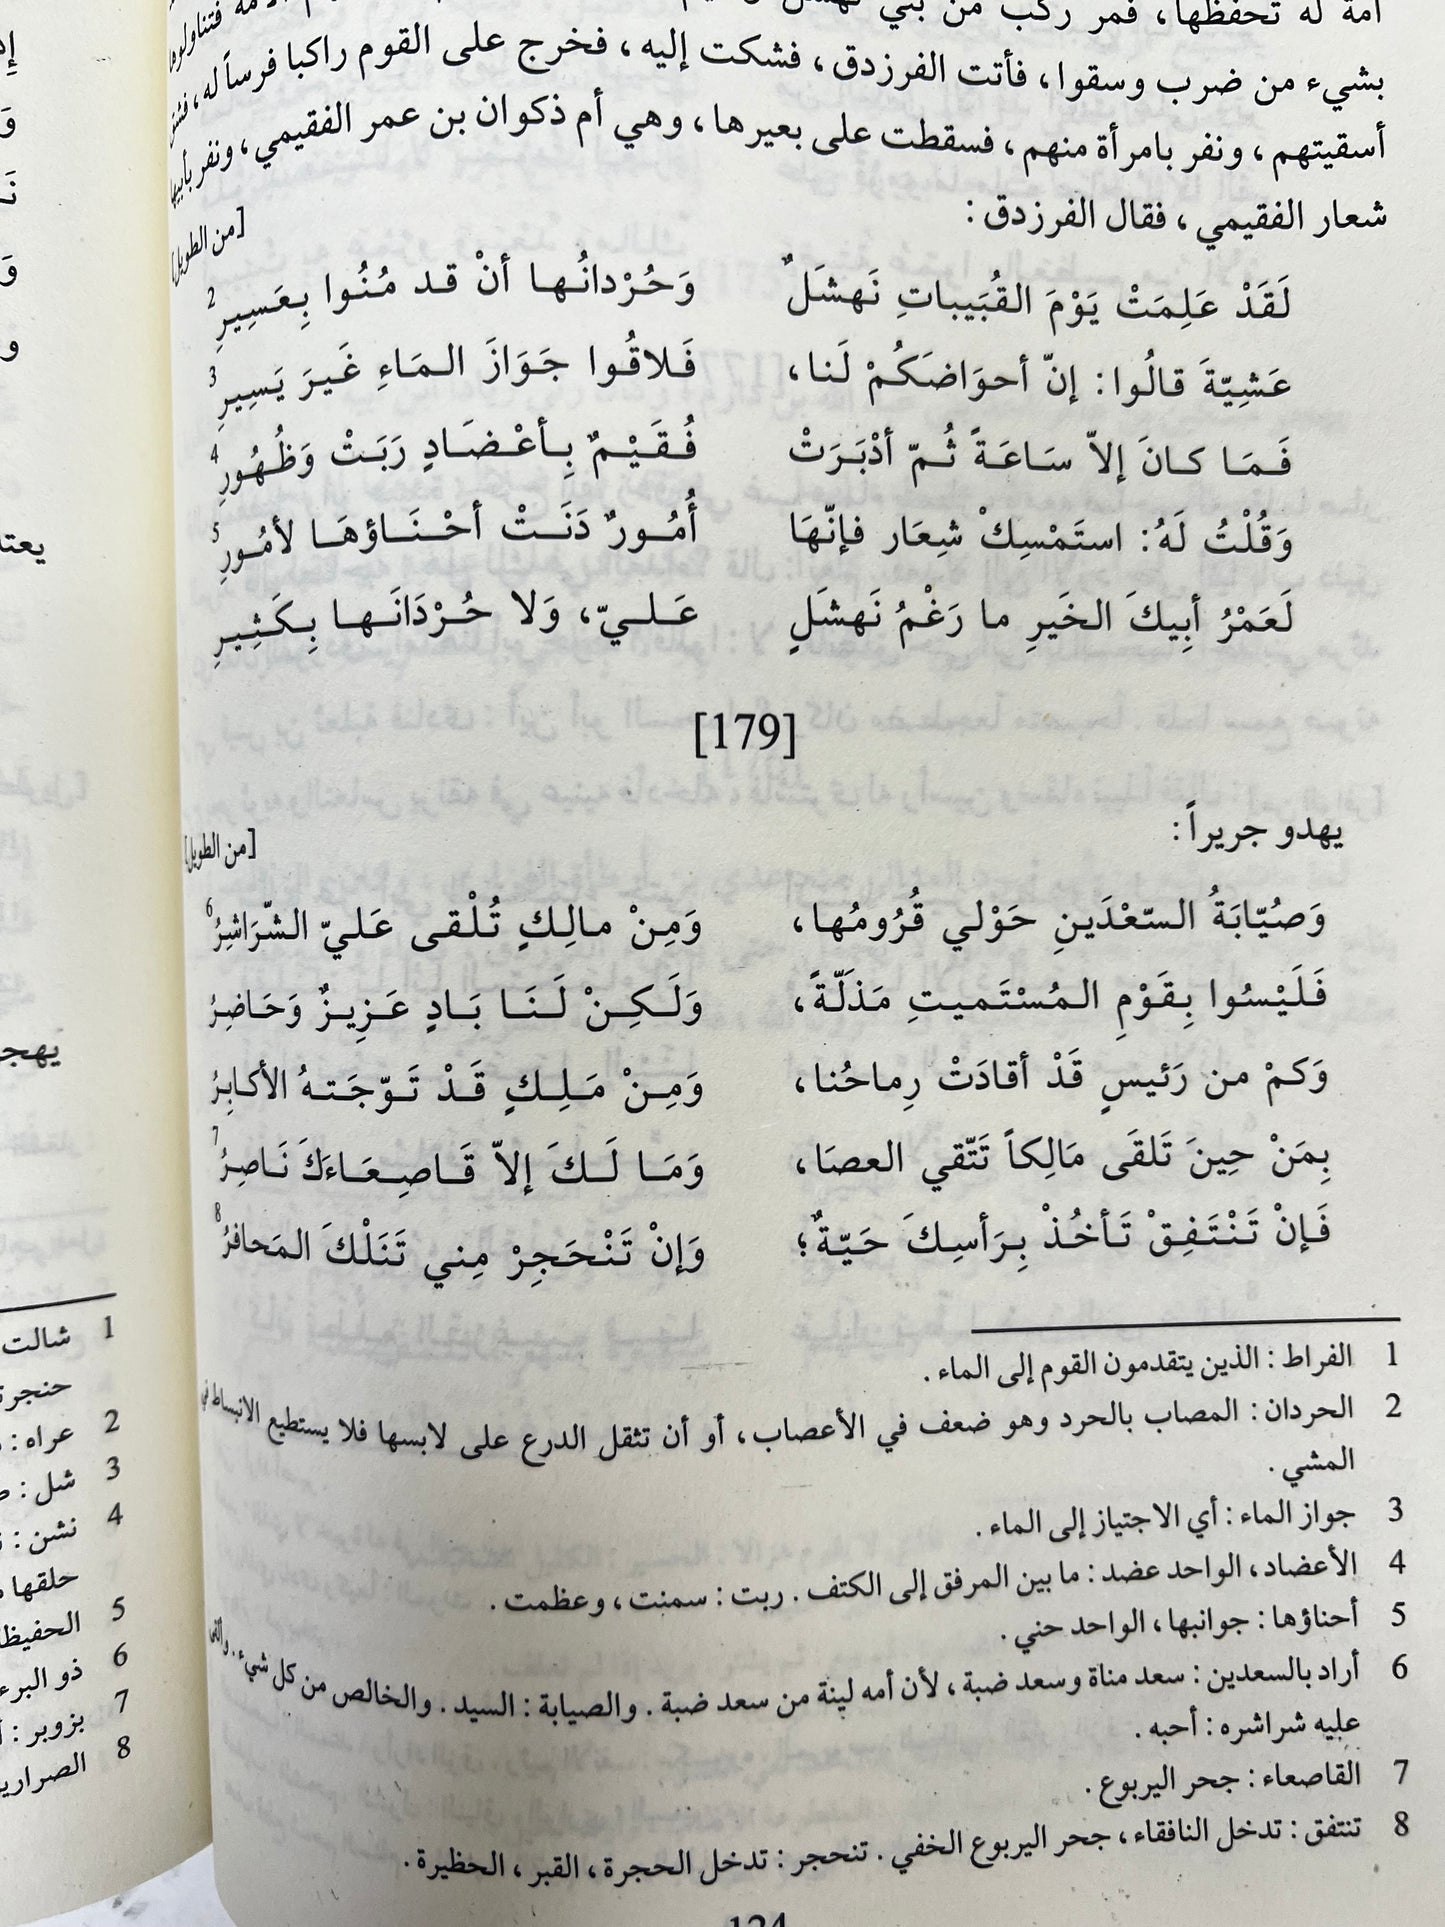 أمة له تحفظها، فمر ركب من بني نهشل
بشيء من ضرب وسقوا، فأتت الفرزدق، فشكت إليه، فخرج على القوم راكبا فرساً له، فشق
أسقيتهم، ونفر بامرأة منهم، فسقطت على بعيرها، وهي أم ذكوان بن عمر الفقيمي، ونفر بأبيها
شعار الفقيمي، فقال الفرزدق:
[من الطويل]
لَقَدْ عَلِمَتْ يَوْمَ القُبَيباتِ نَهشَلٌ وَحُرْدانُها أنْ قد مُنُوا بِعَسِيرِ 2
عَشِيّةَ قالُوا: إنّ أحوَاضَكُمْ لَنا، فَلاقُوا جَوَازَ المَاءِ غَيرَ يَسِيرِ 3
فَمَا كانَ إلاّ سَاعَةً ثُمّ أدْبَرَتْ فُقَيْمٌ بِأعْضَادٍ رَبَتْ وَظُهُورِ 4
وَقُلْتُ لَهُ: استَمْسِكْ شِعَار فإنّهَا أُمُورٌ دَنَتْ أحْنَاؤهَا لأمُورِ 5
لَعَمْرُ أبِيكَ الخَيرِ ما رَغْمُ نَهشَلٍ عَليّ، وَلا حُرْدَانَها بِكَثِيرِ
[179]
يهدو جريراً:
[من الطويل]
وَصُيّابَةُ السّعْدَينِ حَوْلي قُرُومُها، وَمِنْ مالِكٍ تُلْقى عَليّ الشّرَاشِرُ 6
فَلَيْسُوا بِقَوْمِ المُسْتَميتِ مَذَلّةً، وَلَكِنْ لَنَا بَادٍ عَزِيزٌ وَحَاضِرُ
وَكمْ من رَئيسٍ قَدْ أقادَتْ رِماحُنا، وَمِنْ مَلِكٍ قَدْ تَوّجَتهُ الأكابِرُ
بِمَنْ حِينَ تَلقَى مَالِكاً تَتّقي العصَا، وَمَا لَكَ إلاّ قَاصِعَاءَكَ نَاصِرُ 7
فَإنْ تَنْتَفِقْ تَأخُذْ بِرَأسِكَ حَيّةٌ؛ وَإنْ تَنْحَجِرْ مِني تَنَلْكَ المَحافرُ 8
1 الفراط: الذين يتقدمون القوم إلى الماء.
2 الحردان: المصاب بالحرد وهو ضعف في الأعصاب، أو أن تثقل الدرع على لابسها فلا يستطيع الانبساط في
المشي.
3 جواز الماء: أي الاجتياز إلى الماء.
4 الأعضاد، الواحد عضد: ما بين المرفق إلى الكتف. ربت: سمنت، وعظمت.
5 أحناؤها: جوانبها، الواحد حني.
6 أراد بالسعدين: سعد مناة وسعد ضبة، لأن أمه لينة من سعد ضبة. والصيابة: السيد. والخالص من كل شيء. وألقى
عليه شراشره: أحبه.
7 القاصعاء: جحر اليربوع.
8 تنتفق: تدخل النافقاء، جحر اليربوع الخفي. تنحجر: تدخل الحجرة، القبر، الحظيرة.
يهجو
1 شالت
2 عراه:
3 شل:
4 نشن:
حلقها
5
6 ذو البرء
7 بزوبر:
8